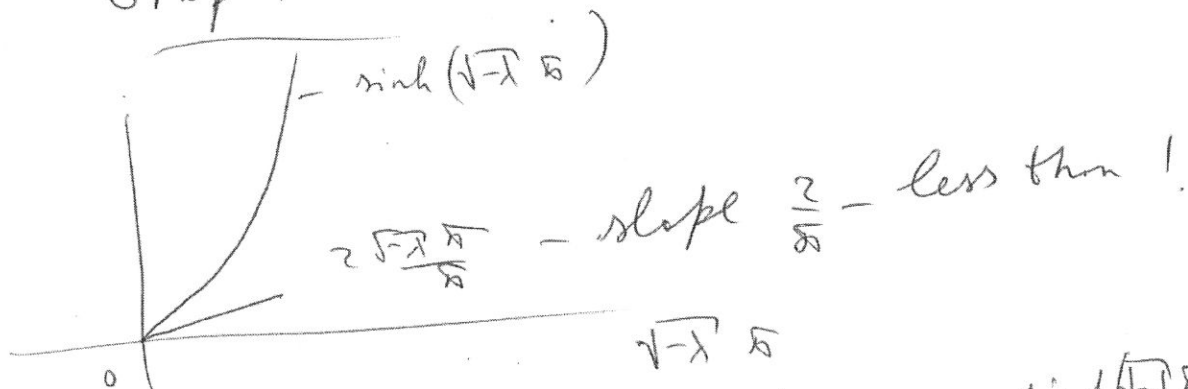 sinh(√-λ π)
2√-λ π/π – slope 2/π – less than 1.
√-λ π
0